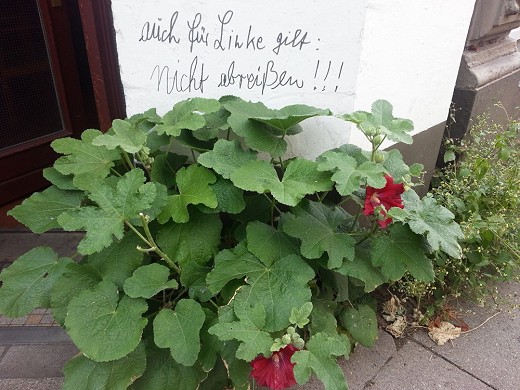 auch für Linke gilt:
Nicht abreißen!!!